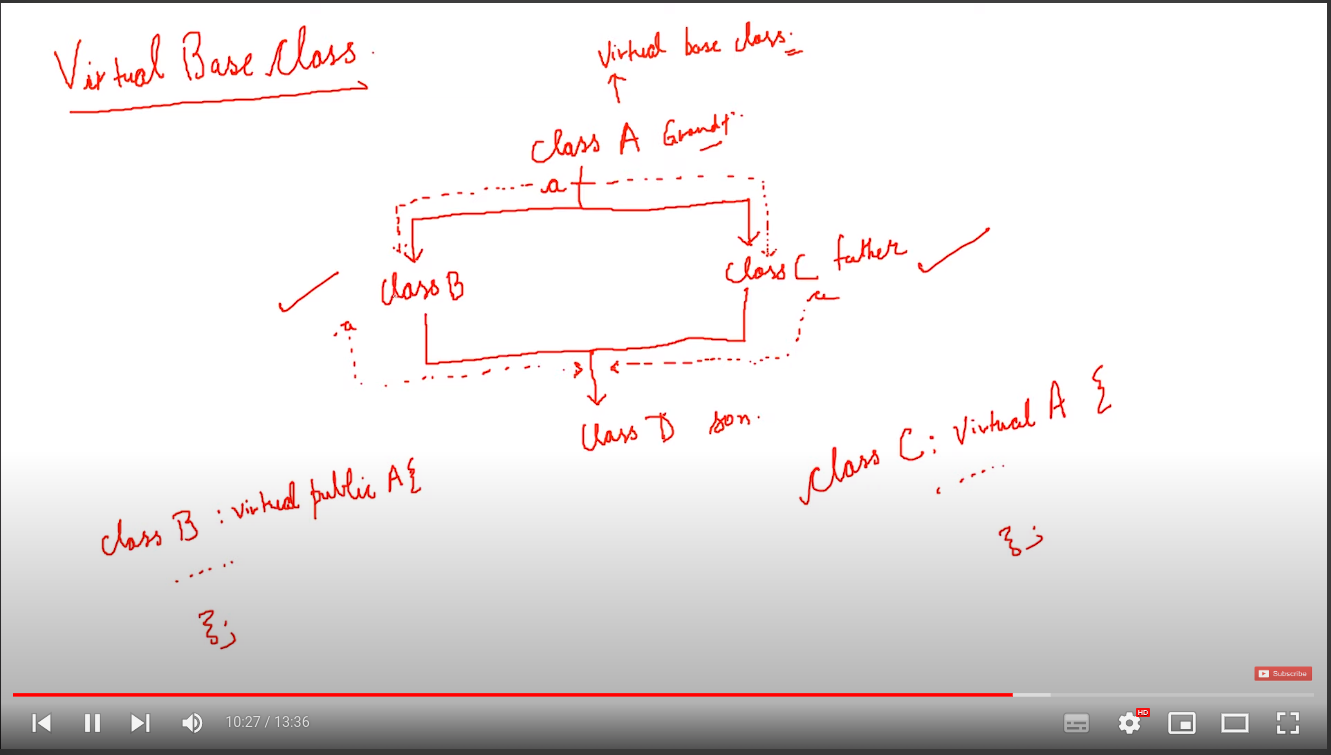 Virtual Base Class.
Virtual base class.
Class A Grandf.
a
Class B
Class C father
a
a
Class D son.
class B : virtual public A{
.....
};
class C: Virtual A {
.....
};
Subscribe
10:27 / 13:36
HD